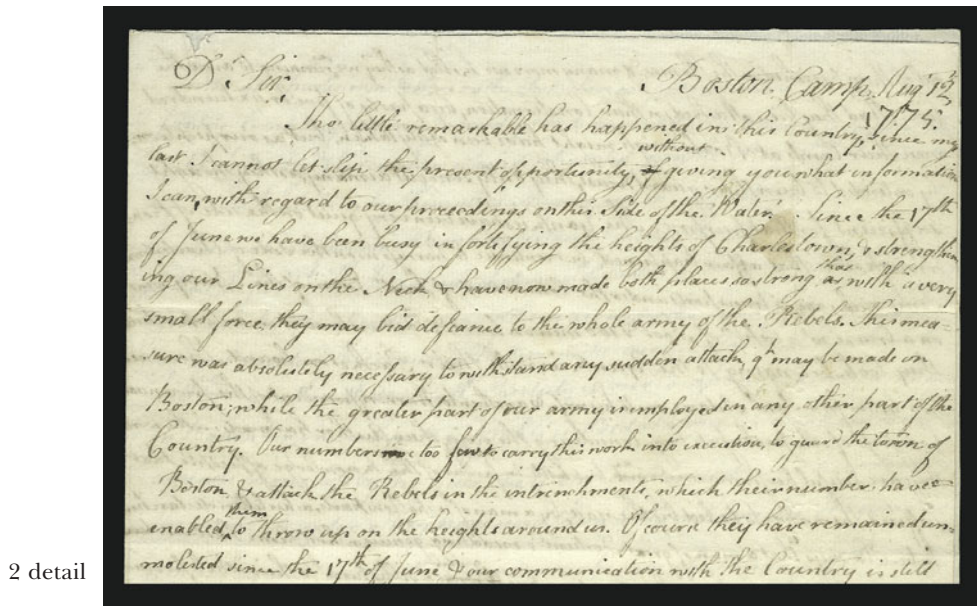 Dr Sir, Boston Camp Augt 12th
1775.
Tho' little remarkable has happened in this Country since my
last I cannot let slip the present opportunity, without giving you what information
I can, with regard to our proceedings on this Side of the Water. Since the 17th
of June we have been busy in fortifying the heights of Charlestown, & strengthen
ing our Lines on the Neck & have now made both places so strong that with a very
small force they may bid defiance to the whole army of the Rebels. This mea-
sure was absolutely necessary to withstand any sudden attack, qh may be made on
Boston, while the greater part of our army is employed in any other part of the
Country. Our numbers too few to carry this work into execution, to guard the town of
Boston, & attack the Rebels in the intrenchments, which their number have
enabled them to throw up on the heights around us. Of course they have remained un-
molested since the 17th of June & our communication with the Country is still
2 detail